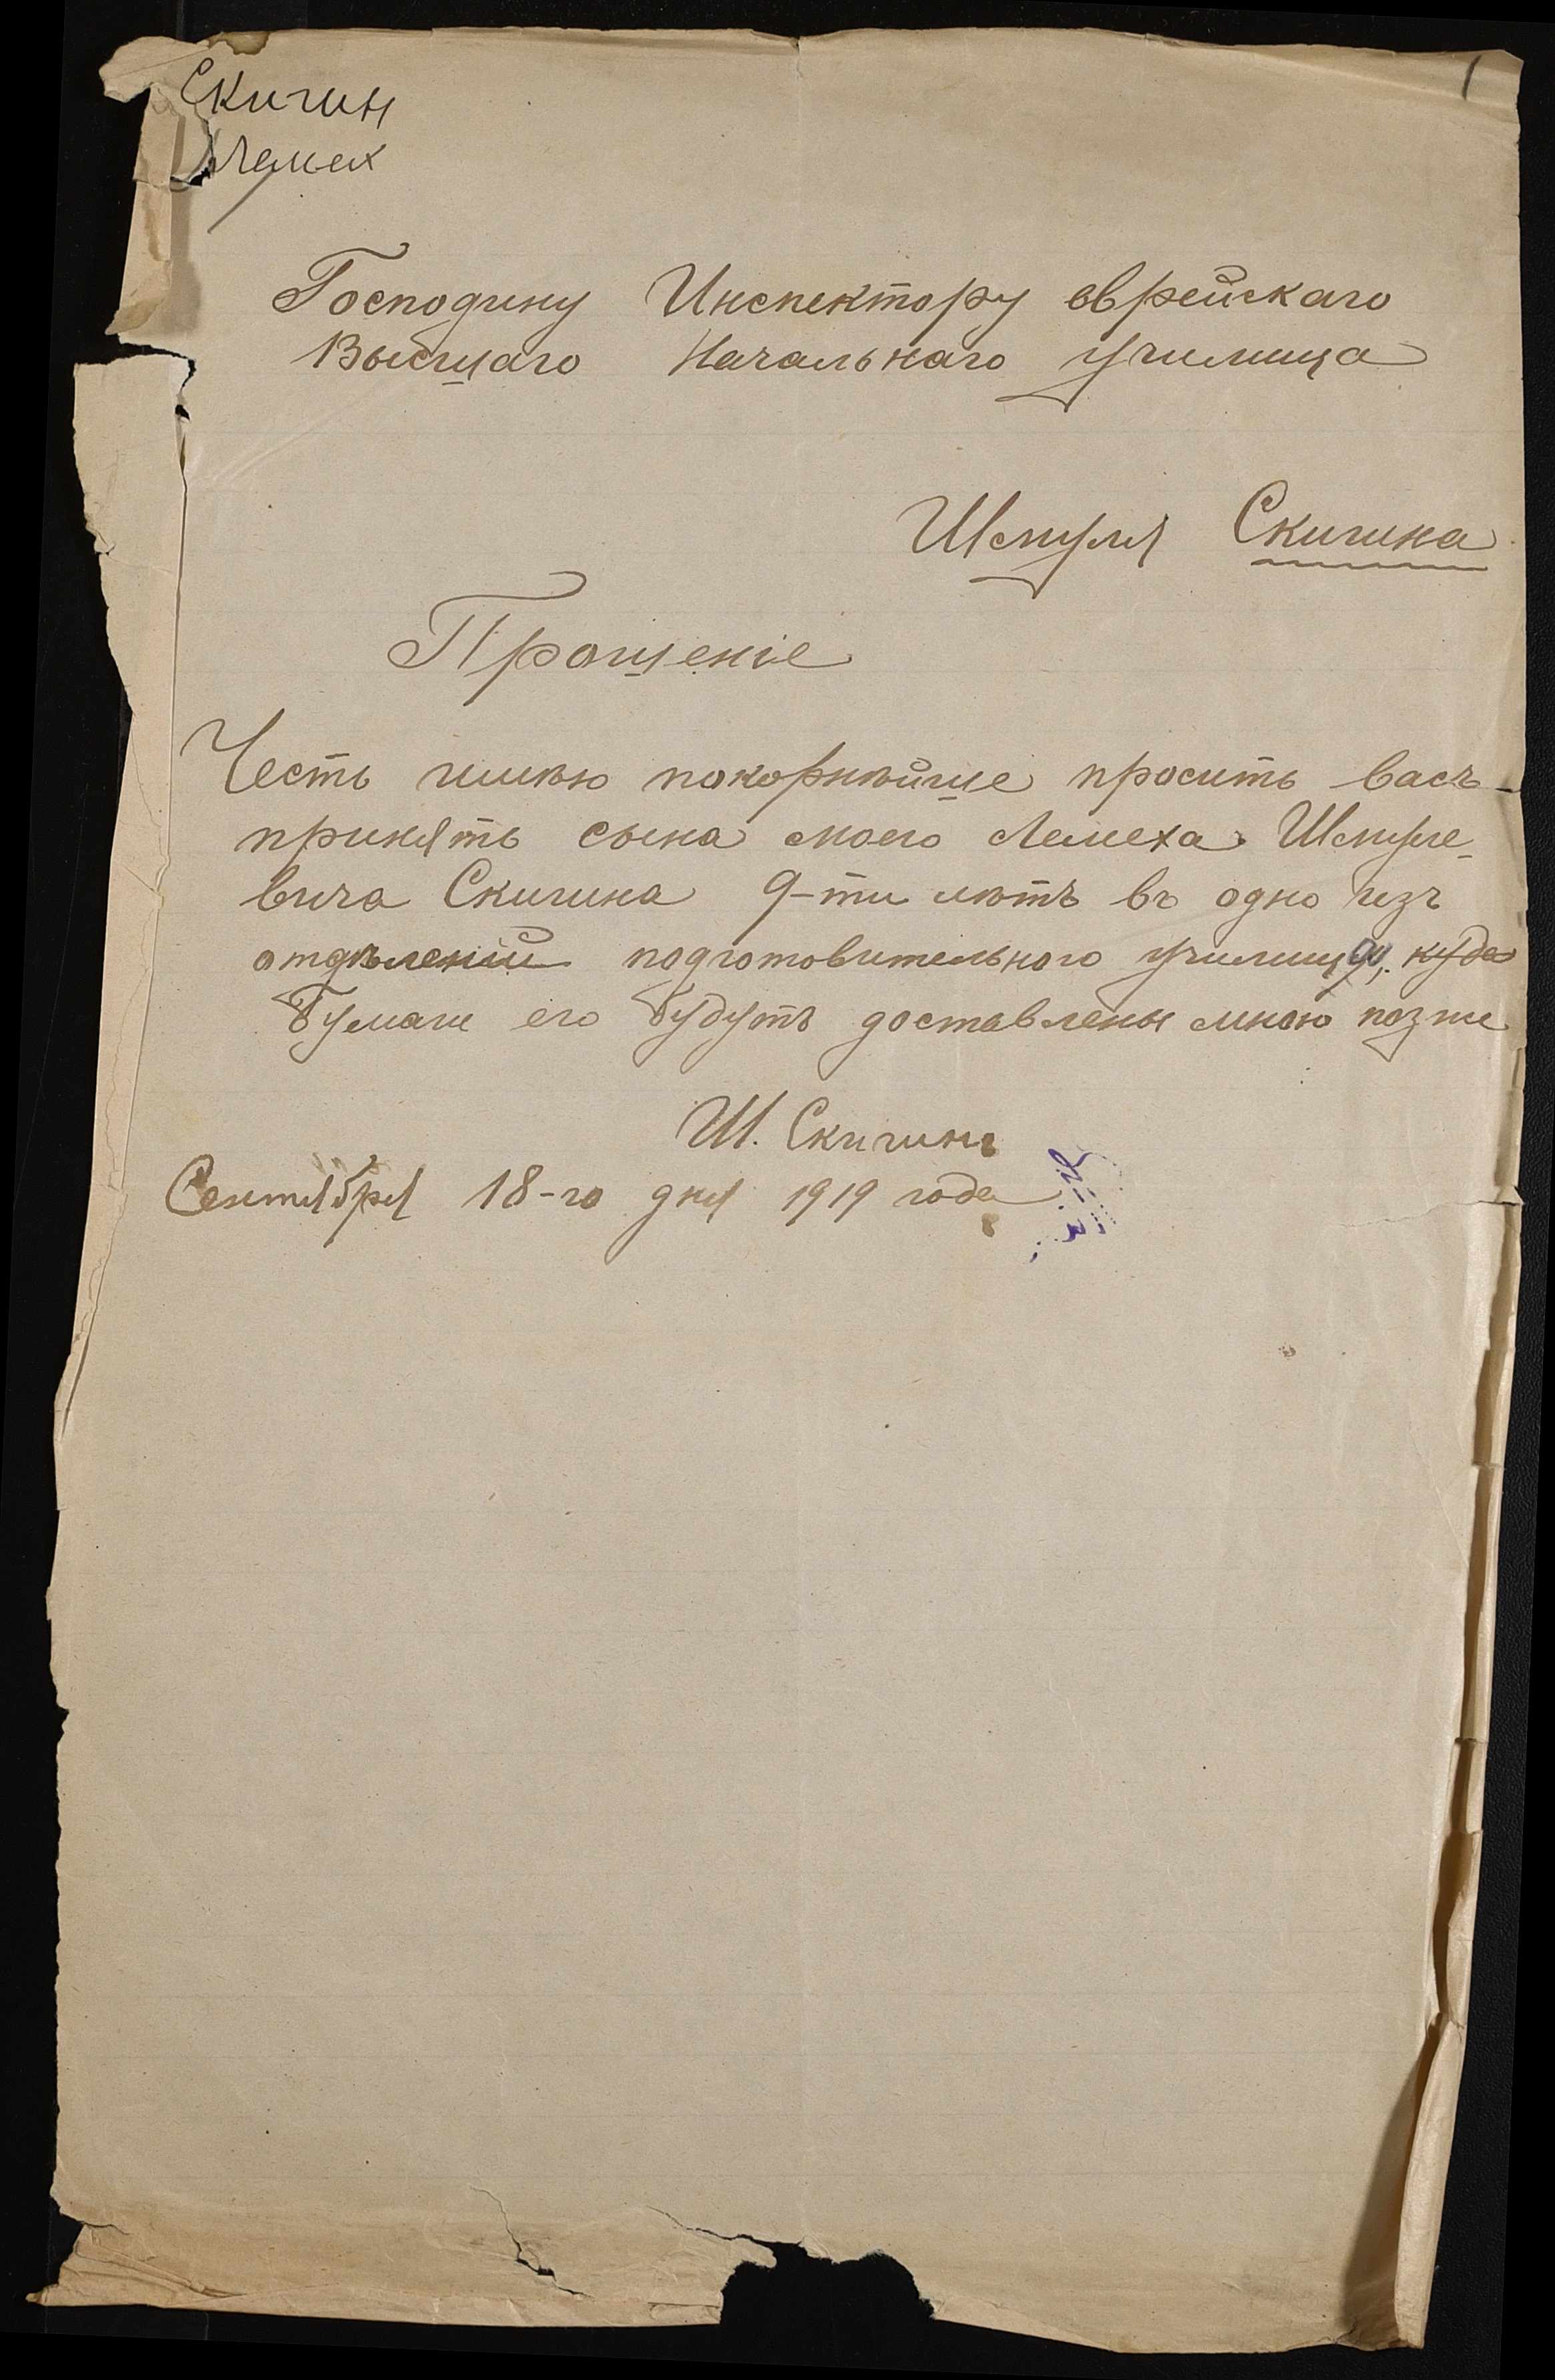 1
Скигин
Лемех
Господину Инспектору еврейскаго
Высшаго Начальнаго училища
Шмуля Скигина
Прошеніе
Честь имѣю покорнѣйше просить васъ
принять сына моего Лемеха Шмуле-
вича Скигина 9-ти лѣтъ въ одно изъ
отдѣленій подготовительного училища, куда
Бумаги его будутъ доставлены мною позже
Ш. Скигинъ
Сентября 18-го дня 1919 года